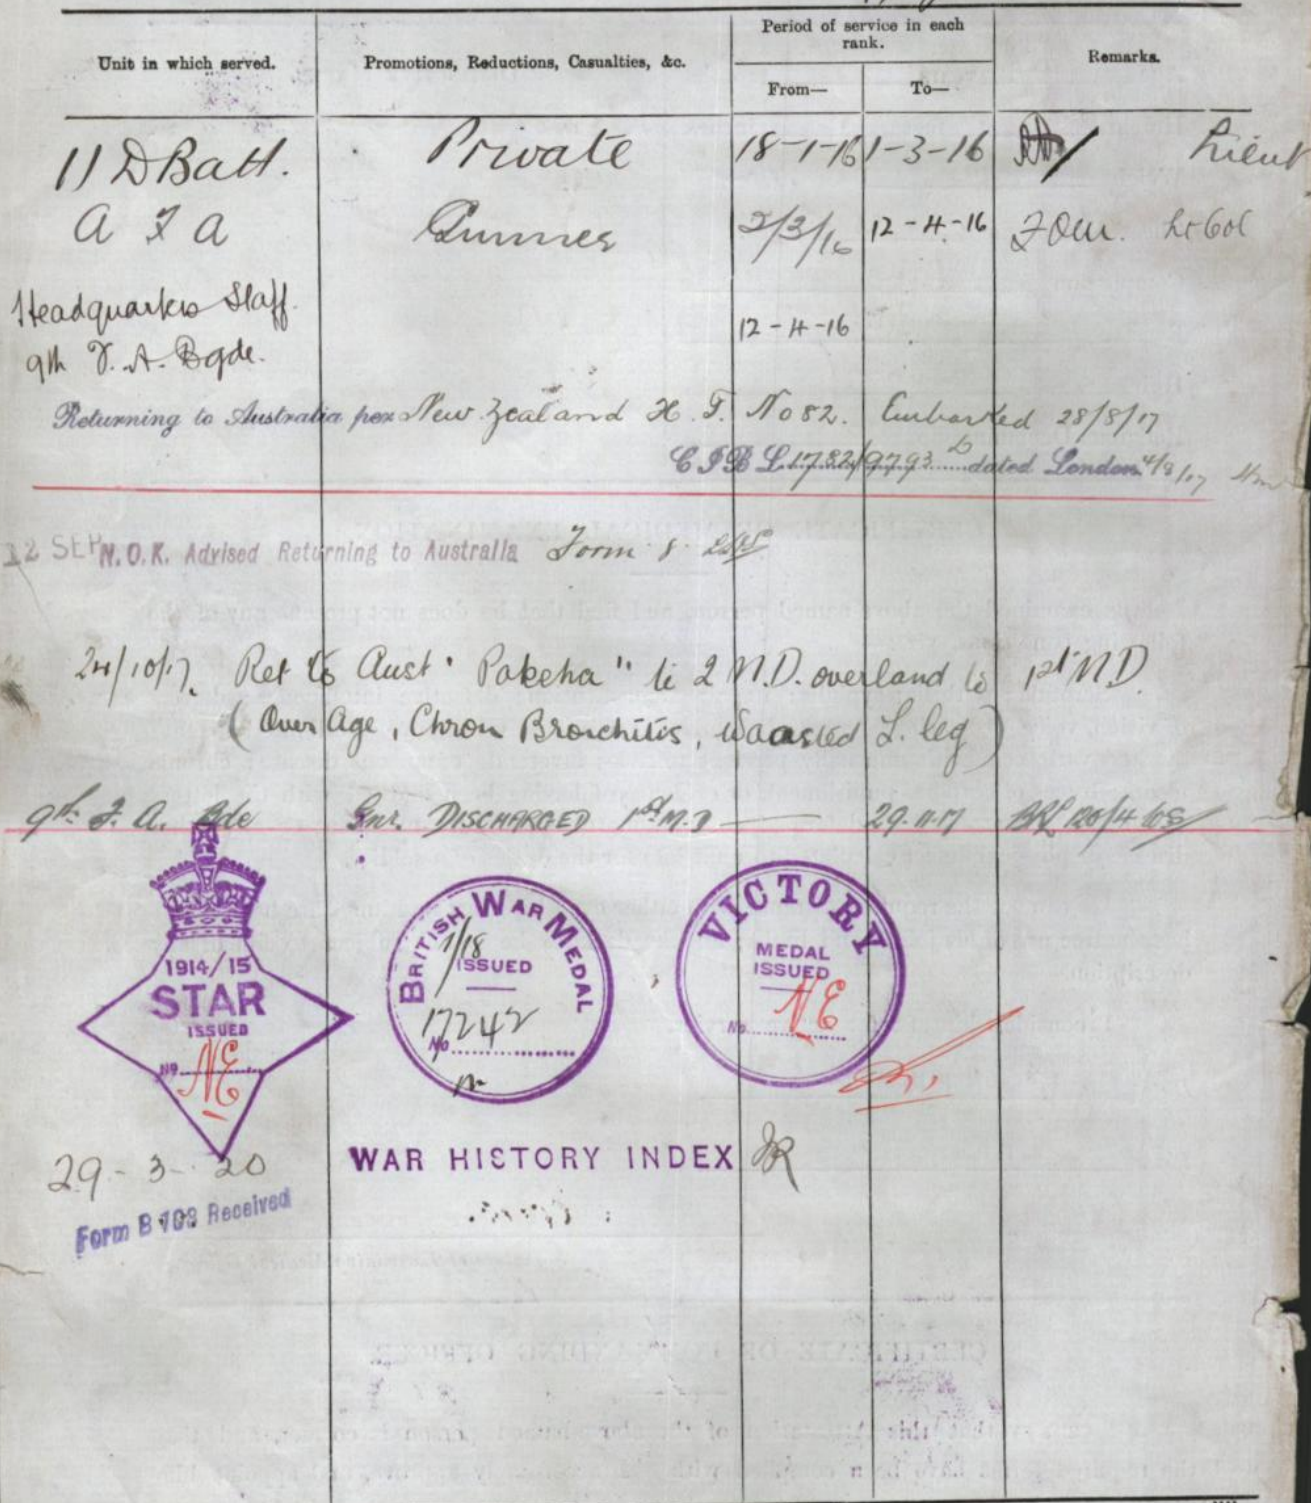 Unit in which served. Promotions, Reductions, Casualties, &c. Period of service in each rank. From— To— Remarks.
11 D Batt. Private 18-1-16 1-3-16 Lieut
A F A Gunner 2/3/16 12-4-16 Lt Col
Headquarters Staff.
12-4-16
9th F. A. Bgde.
Returning to Australia per New Zealand H. T. No 82. Embarked 28/8/17
dated London 4/8/17
12 SEP N.O.K. Advised Returning to Australia Form 8.
24/10/17. Ret to Aust "Pakeha" to 2 M.D. overland to 1st M.D.
(Over Age, Chron Bronchitis, Wasted L. leg)
9th F. A. Bde Gnr. DISCHARGED 1st M.D — 29.11.17
1914/15
STAR
ISSUED
No. NE
BRITISH WAR MEDAL
1/18
ISSUED
17242
No
VICTORY
MEDAL
ISSUED
No. NE
WAR HISTORY INDEX
29-3-20
Form B 103 Received
CERTIFICATE OF COMMANDING OFFICER